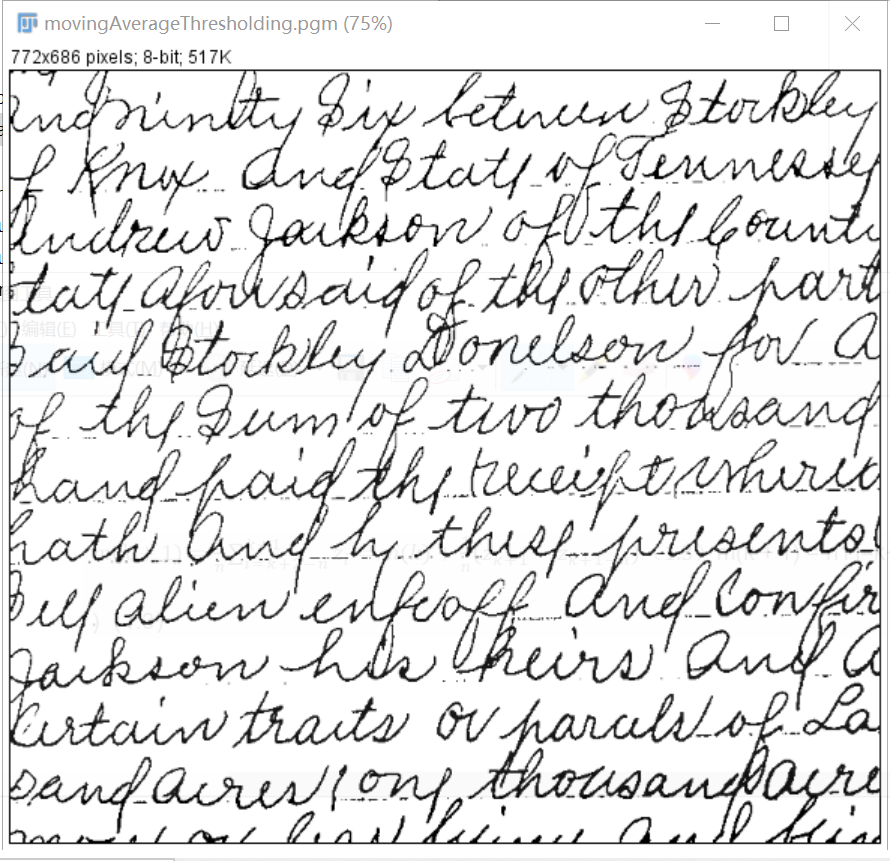 movingAverageThresholding.pgm (75%)
772x686 pixels; 8-bit; 517K
indninty Six between Stockley
of Knox and State of Tennessey
Andrew Jackson of the County
tate aforesaid of the other part
said Stockley Donelson for a
of the Sum of two thousand
hand paid the receipt where
hath and by these presents
Sell alien enfeoff and Confir
Jackson his heirs and a
Certain traits or parcels of La
sand acres one thousand acre